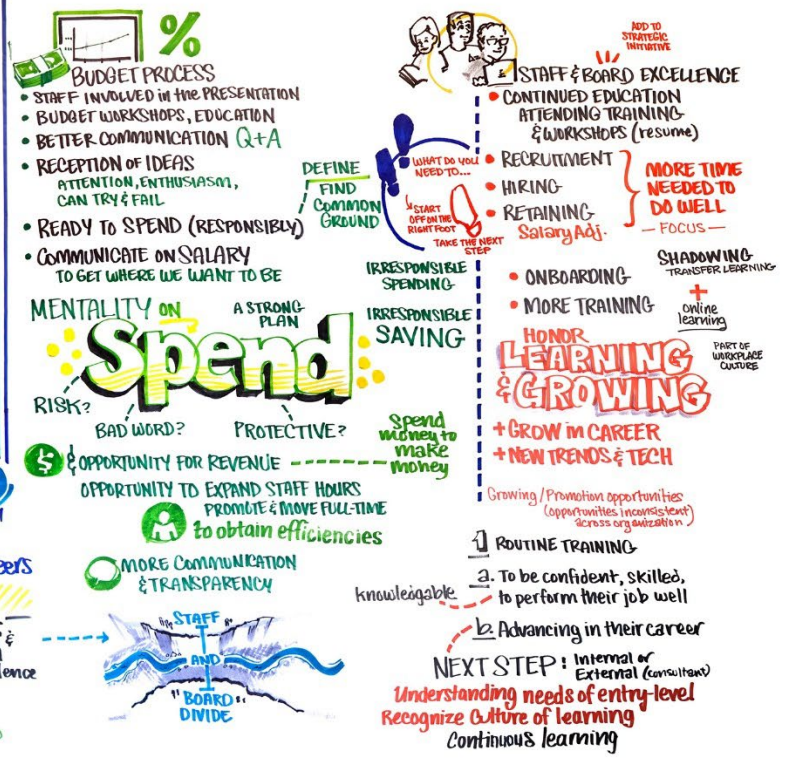 %
BUDGET PROCESS
• STAFF INVOLVED in the PRESENTATION
• BUDGET WORKSHOPS, EDUCATION
• BETTER COMMUNICATION Q+A
• RECEPTION OF IDEAS
ATTENTION, ENTHUSIASM,
CAN TRY & FAIL
• READY TO SPEND (RESPONSIBLY)
• COMMUNICATE ON SALARY
TO GET WHERE WE WANT TO BE
DEFINE
FIND
COMMON
GROUND
MENTALITY ON
Spend
A STRONG
PLAN
IRRESPONSIBLE
SPENDING
IRRESPONSIBLE
SAVING
RISK?
BAD WORD?
PROTECTIVE?
$ & OPPORTUNITY FOR REVENUE
Spend
money to
make
money
OPPORTUNITY TO EXPAND STAFF HOURS
PROMOTE & MOVE FULL-TIME
to obtain efficiencies
MORE COMMUNICATION
& TRANSPARENCY
eers
&
ence
STAFF
AND
BOARD
DIVIDE
!
WHAT DO YOU
NEED TO...
START
OFF ON THE
RIGHT FOOT
TAKE THE NEXT
STEP
ADD TO
STRATEGIC
INITIATIVE
STAFF & BOARD EXCELLENCE
• CONTINUED EDUCATION
ATTENDING TRAINING
& WORKSHOPS (resume)
• RECRUITMENT
• HIRING
• RETAINING
Salary Adj.
MORE TIME
NEEDED TO
DO WELL
— FOCUS —
• ONBOARDING
• MORE TRAINING
SHADOWING
TRANSFER LEARNING
+
online
learning
PART OF
WORKPLACE
CULTURE
HONOR
LEARNING
& GROWING
+ GROW in CAREER
+ NEW TRENDS & TECH
Growing/Promotion opportunities
(opportunities inconsistent)
across organization)
1 ROUTINE TRAINING
a. To be confident, skilled,
to perform their job well
knowledgable
b. Advancing in their career
NEXT STEP: Internal or
External (consultant)
Understanding needs of entry-level
Recognize Culture of learning
Continuous learning